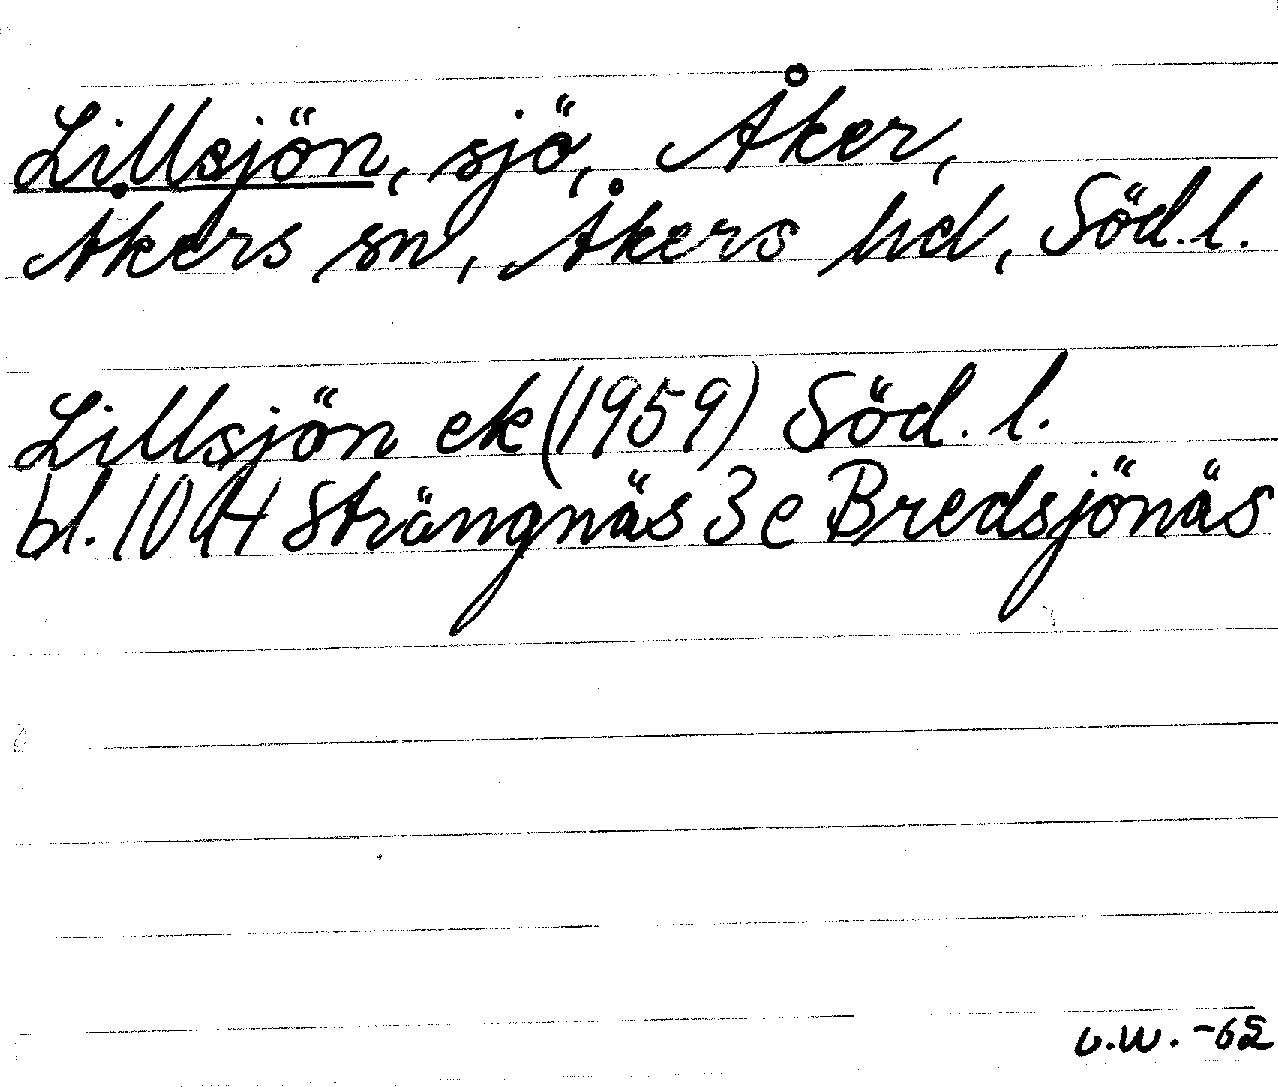 Lillsjön, sjö, Åker,
Åkers sn, Åkers hd, Söd. l.
Lillsjön ek (1959) Söd. l.
bl. 10 H Strängnäs 3 e Bredsjönäs
u.w. -62